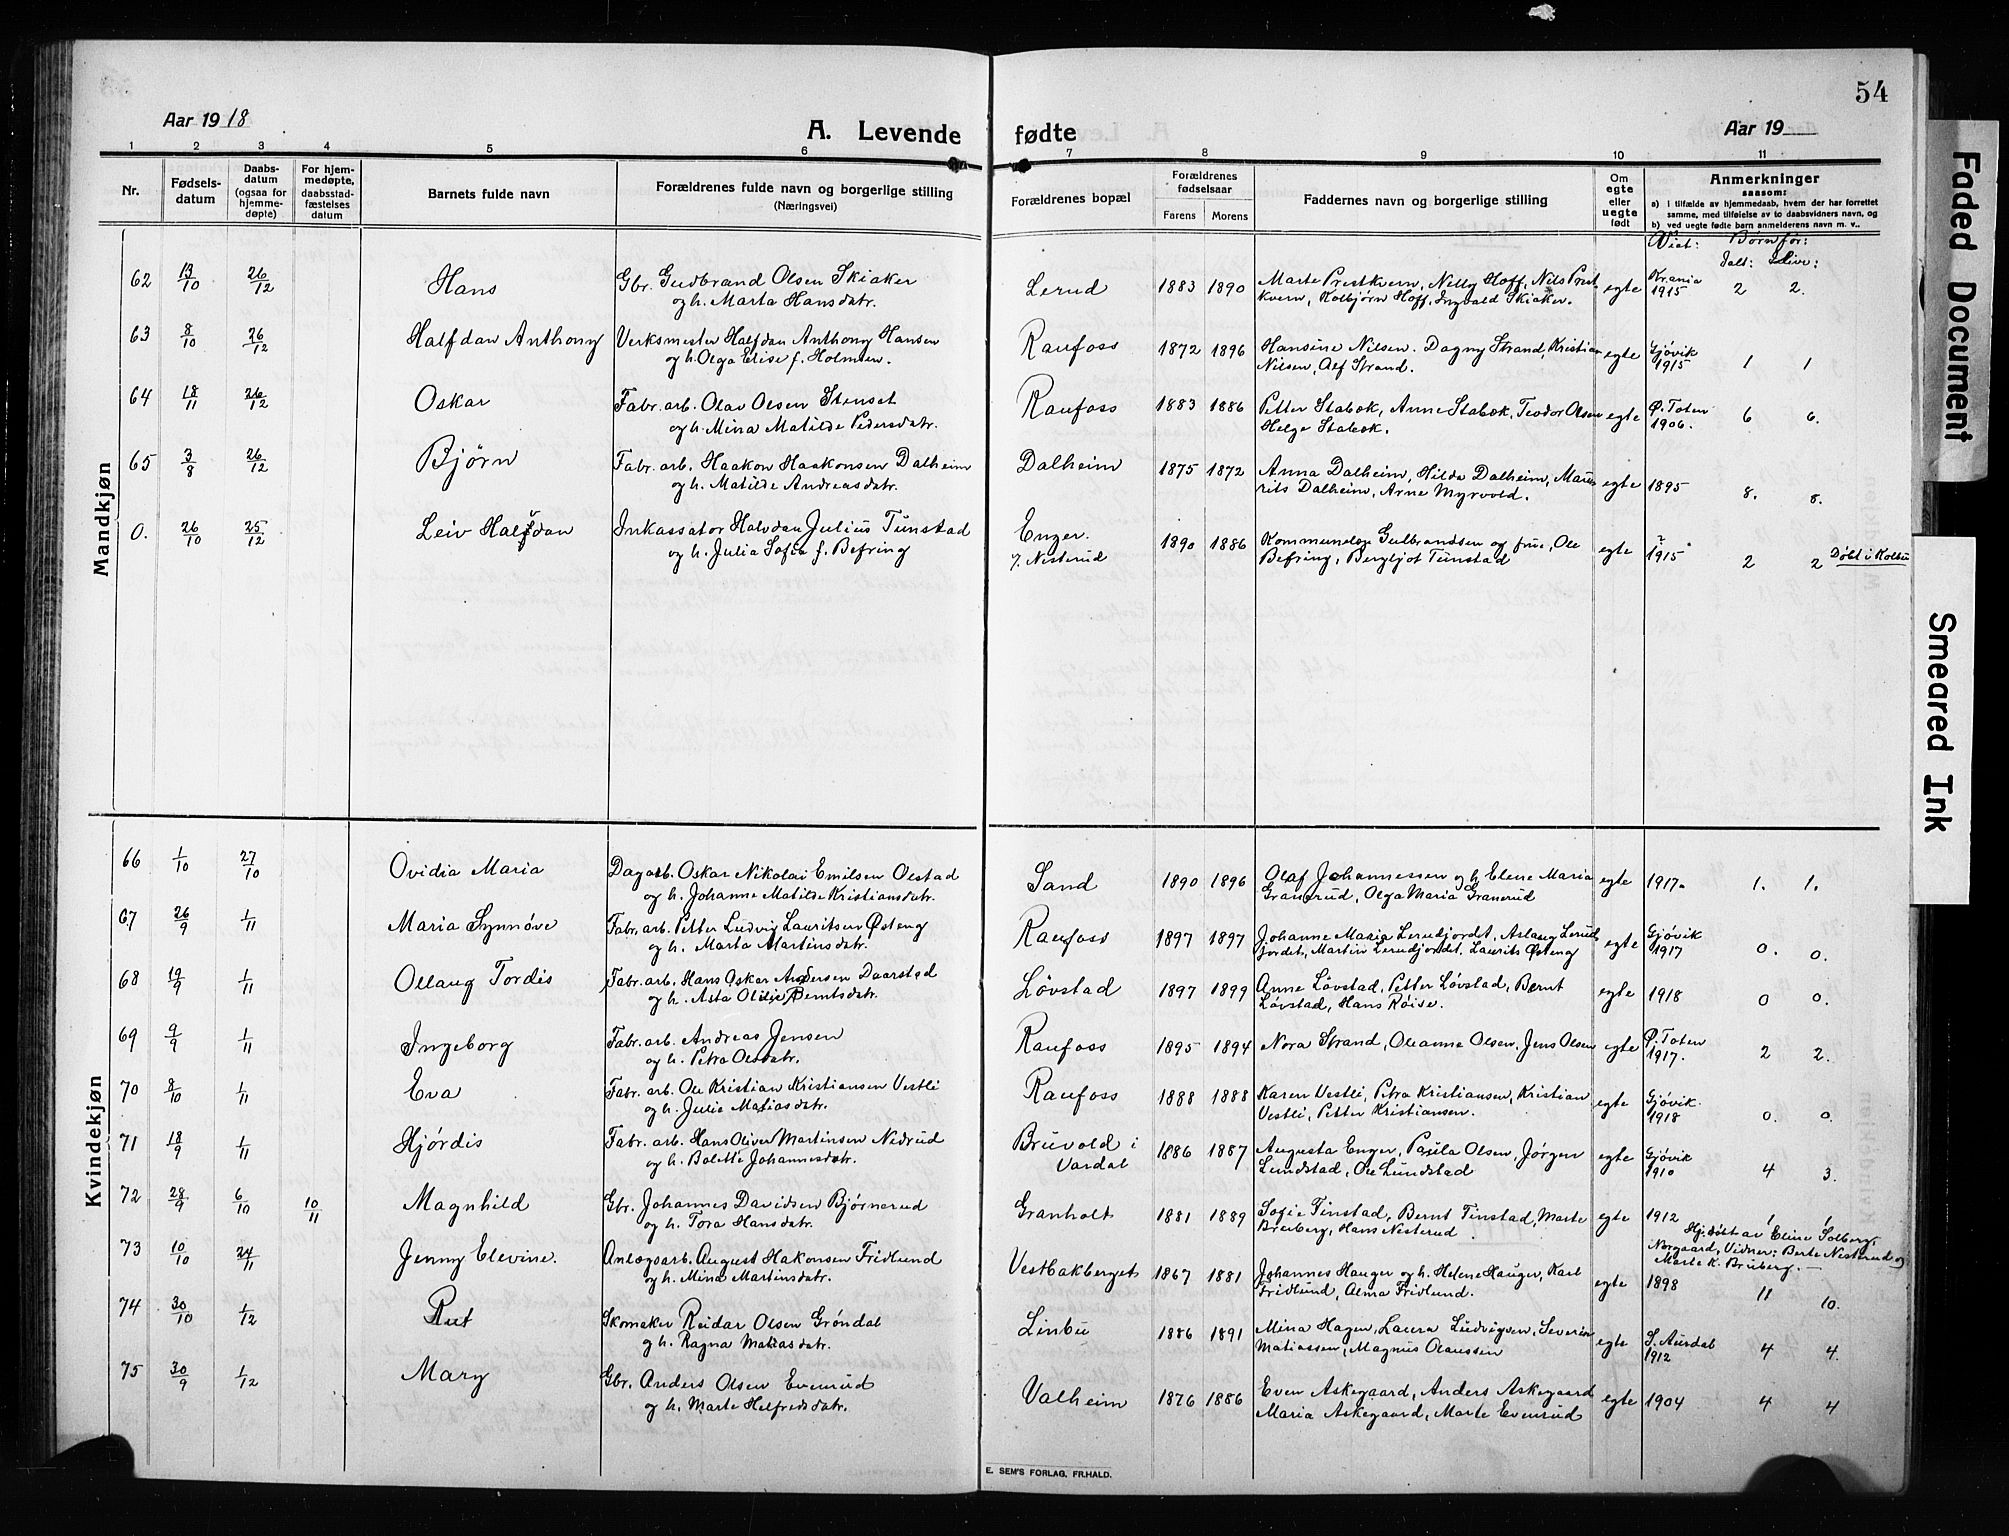 54
Aar 1918
A. Levende fødte
Aar 19
1 2 3 4 5 6 7 8 9 10 11
Nr.
Fødsels-
datum
Daabs-
datum
(ogsaa for
hjemme-
døpte)
For hjem-
medøpte,
daabsstad-
fæstelses
datum
Barnets fulde navn
Forældrenes fulde navn og borgerlige stilling
(Næringsvei)
Forældrenes bopæl
Forældrenes
fødselsaar
Farens Morens
Faddernes navn og borgerlige stilling
Om
egte
eller
uegte
født
Anmerkninger
saasom:
a) i tilfælde av hjemmedaab, hvem der har forrettet
samme, med tilføielse av to daabsvidners navn, og
b) ved uegte fødte barn anmelderens navn m. v..
Viet: Børn før:
Ialt: Ilive:
Mandkjøn
62 13/10 26/12 Hans Gbr. Gudbrand Olsen Skiaker Lerud 1883 1890 Marte Prestkvern, Nelly Hoff, Nils Prest egte Krania
og h. Marta Hansdatr. kvern, Kolbjørn Hoff, Ingvald Skiaker. 1915 2 2.
63 8/10 26/12 Halfdan Anthony Verksmester Halfdan Anthony Hansen Raufoss 1872 1896 Hansine Nilsen. Dagny Strand, Kristian egte Gjøvik
og h. Olga Elise f. Holmen. Nilsen, Alf Strand. 1915 1 1
64 18/11 26/12 Oskar Fabr. arb. Olav Olsen Stenset Raufoss 1883 1886 Petter Stabæk, Anne Stabæk, Teodor Olsen egte Ø. Toten
og h. Mina Matilde Pedersdatr. Helge Stabæk. 1906. 6 6.
65 3/8 26/12 Bjørn Fabr. arb. Haakon Haakonsen Dalheim Dalheim 1875 1872 Anna Dalheim, Hilda Dalheim, Mau egte 1895 8. 8.
og h. Matilde Andreasdatr. rits Dalheim, Arne Myrvold.
0. 26/10 25/12 Leiv Halfdan Inkassator Halvdan Julius Tunstad Enger. 1890 1886 Gulbrandsen og frue, Ole egte ?
og h. Julia Sofia f. Befring Nesterud Befring, Bergljot Tunstad 1915 2 2 Døbt i Kolbu
Kvindekjøn
66 1/10 27/10 Ovidia Maria Dagarb. Oskar Nikolai Emilsen Olstad Sand 1890 1896 Olaf Johannessen og h. Elene Maria egte 1917. 1. 1.
og h. Johanne Matilde Kristiansdatr. Granerud, Olga Maria Granerud
67 26/9 1/11 Maria Synnøve Fabr. arb. Petter Ludvig Lauritsen Østeng Raufoss 1897 1897 Johanne Maria Lerudjordet, Aslaug Lerud egte Gjøvik
og h. Marta Martinsdatr. jordet, Martin Lerudjordet. Laurits Østeng 1917 0. 0.
68 19/9 1/11 Ollaug Tordis Fabr. arb. Hans Oskar Andersen Daarstad Løvstad 1897 1899 Anne Løvstad, Petter Løvstad, Bernt egte 1918 0 0.
og h. Asta Otilie Berntsdatr. Løvstad, Hans Røise.
69 9/9 1/11 Ingeborg Fabr. arb. Andreas Jensen Raufoss 1895 1894 Nora Strand, Oleanne Olsen, Jens Olsen egte Ø. Toten
og h. Petra Olesdatr. 1917. 2 2.
70 8/10 1/11 Eva Fabr. arb. Ole Kristian Kristiansen Vestli Raufoss 1888 1888 Karen Vestli, Petra Kristiansen, Kristian egte Gjøvik
og h. Julie Matiasdatr. Vestli, Petter Kristiansen. 1918 0. 0.
71 18/9 1/11 Hjørdis Fabr. arb. Hans Oliver Martinsen Nedrud Bruvold i 1886 1887 Augusta Enger, Paula Olsen, Jørgen egte Gjøvik
og h. Bolette Johannesdatr. Vardal Lundstad, Ole Lundstad 1910 4 3.
72 28/9 6/10 10/11 Magnhild Gbr. Johannes Davidsen Bjørnerud Granholt 1881 1889 Sofie Tinstad, Bernt Tinstad, Marte egte 1912 1 1
og h. Tora Hansdatr. Breiberg, Hans Nesterud. Hj. døbt av Eline Solberg,
Norgaard, Vidner: Berte Nesterud og
Marte K. Bruberg.
73 10/10 24/11 Jenny Elevine. Anlægsarb. August Hakonsen Fridlund Vestbakberget 1867 1881 Johannes Hauger og h. Helene Hauger, Karl egte 1898 11 10.
og h. Mina Martinsdatr. Fridlund, Alma Fridlund.
74 30/10 1/12 Rut Skomaker Reidar Olsen Grøndal Linbu 1886 1891 Mina Hagen, Laura Ludvigsen, Severin egte S. Aurdal
og h. Ragna Matiasdatr. Matiassen, Magnus Olaussen 1912 4 4.
75 30/9 1/12 Mary Gbr. Anders Olsen Evenrud Valheim 1876 1886 Even Askegaard, Anders Askegaard egte 1904 4 4
og h. Marte Helfredsdatr. Maria Askegaard, Marte Evenrud
E. SEM'S FORLAG, FR.HALD.
Faded Document
Smeared Ink